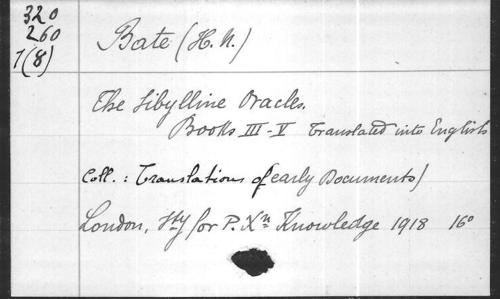 320
260
7(8)
Bate (H. N.)
The Sibylline Oracles.
Books III-V Translated into English
Coll.: Translations of early Documents)
London, Sty for P. Xn Knowledge 1918 16°